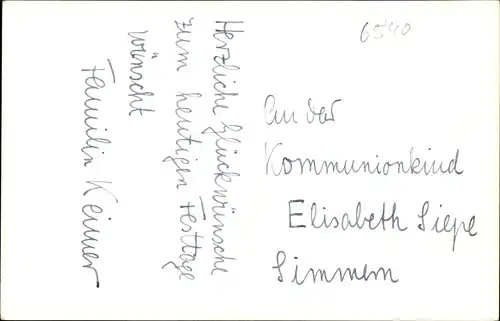 6540
Herzliche Glückwünsche
zum heutigen Festtage
wünscht
Familie Keimer
An das
Kommunionkind
Elisabeth Siepe
Simmern